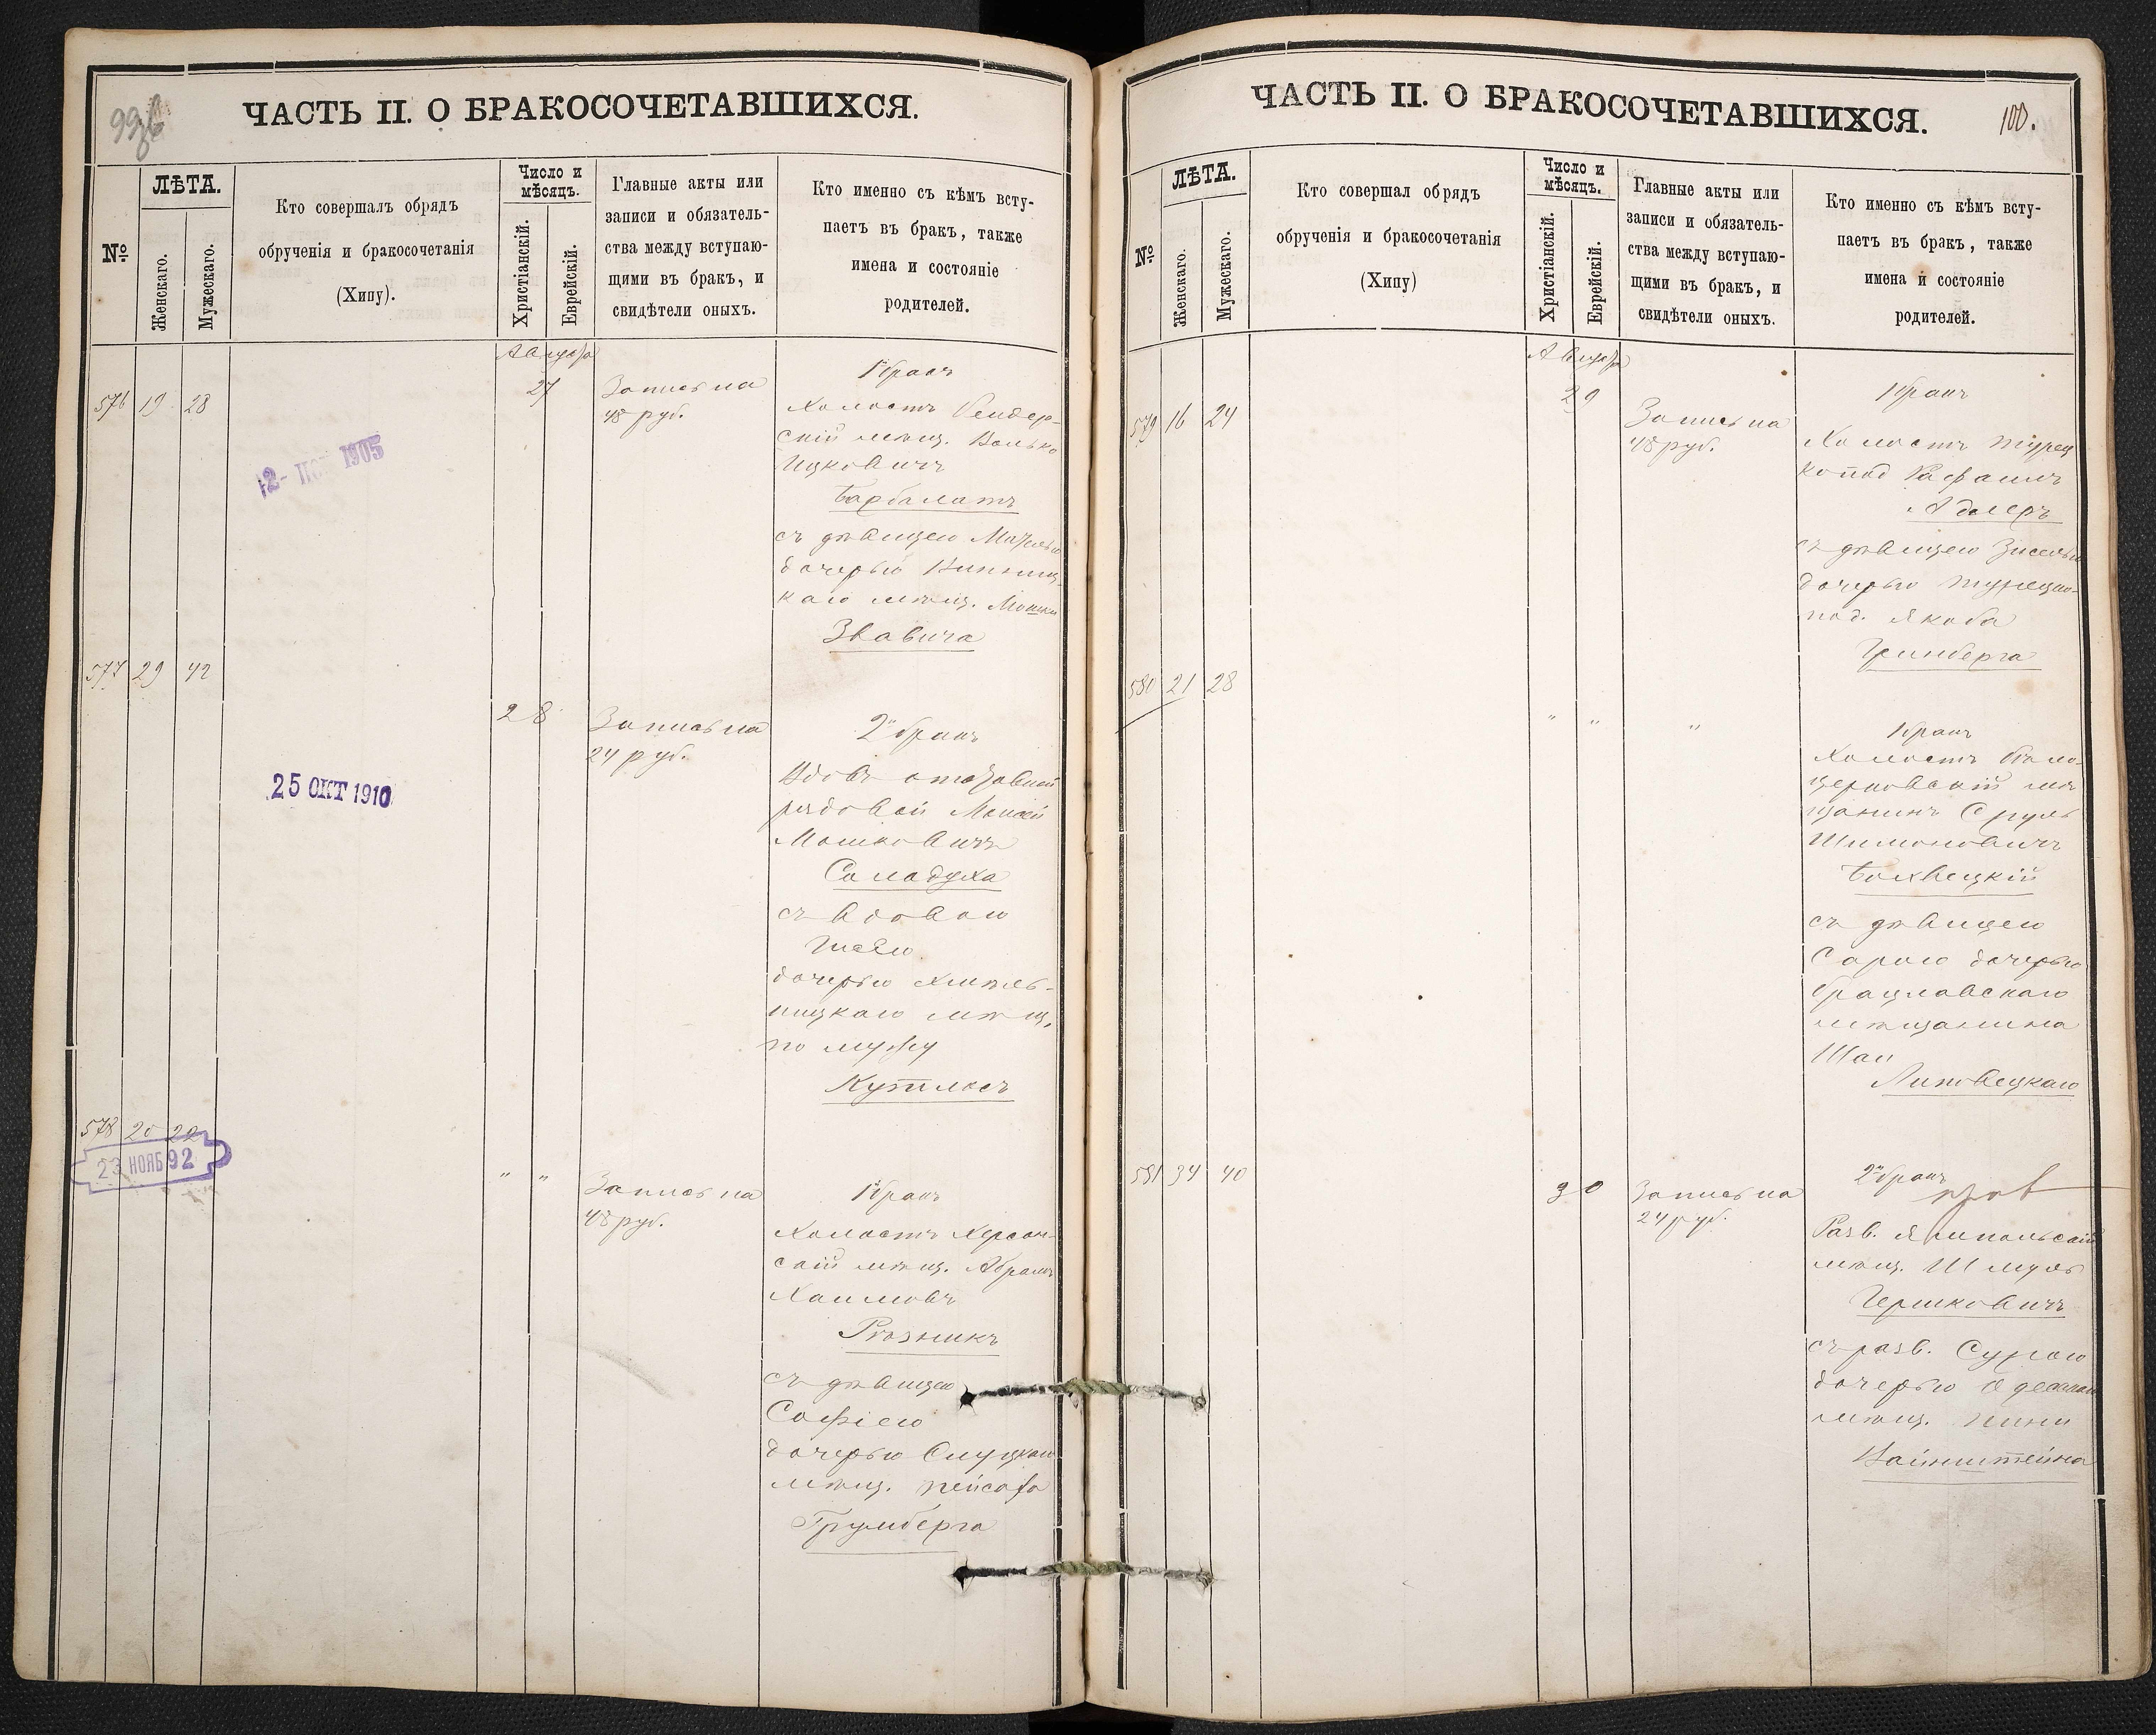 99
ЧАСТЬ II. О БРАКОСОЧЕТАВШИХСЯ.
№
ЛѢТА.
Женскаго.
Мужескаго.
Кто совершалъ обрядъ
обрученія и бракосочетанія
(Хипу).
Число и
мѣсяцъ.
Христіанскій.
Еврейскій.
Главные акты или
записи и обязатель-
ства между вступаю-
щими въ бракъ, и
свидѣтели оныхъ.
Кто именно съ кѣмъ всту-
паетъ въ бракъ, также
имена и состояніе
родителей.
576 19 28
27
Запись на
48 руб.
1й бракъ
Холостъ Бендер-
скій мѣщ. Волько
Ицковичъ
Барбалатъ
съ дѣвицею
дочерью Винниц-
каго мѣщ. Мошки
Звавича
12- 1905
577 29 42
28
Запись на
24 руб.
2й бракъ
Вдовъ отставной
рядовой Моисей
Мошковичъ
Соладуха
съ вдовою
дочерью Хмѣль-
ницкаго мѣщ.
по мужу
25 ОКТ 1910
578 20 22
23 НОЯБ 92
" "
Запись на
48 руб.
1й бракъ
Холостъ Херсон-
скій мѣщ. Абрамъ
Хаимовъ
Рѣзникъ
съ дѣвицею
Софіею
дочерью Слуцкаго
мѣщ. Пейсаха
Грумберга
ЧАСТЬ II. О БРАКОСОЧЕТАВШИХСЯ.
100.
№
ЛѢТА.
Женскаго.
Мужескаго.
Кто совершал обрядъ
обрученія и бракосочетанія
(Хипу)
Число и
мѣсяцъ.
Христіанскій.
Еврейскій.
Главные акты или
записи и обязатель-
ства между вступаю-
щими въ бракъ, и
свидѣтели оныхъ.
Кто именно съ кѣмъ всту-
паетъ въ бракъ, также
имена и состояніе
родителей.
579 16 24
29
Запись на
48 руб.
1й бракъ
Холостъ турец
ко под Рафаилъ
Адлеръ
съ дѣвицею
дочерью турецко-
под. Якоба
Гринберга
580 21 28
" " "
1й бракъ
Холостъ Бѣло-
церковскій мѣ
щанинъ Сруль
Шимоновичъ
съ дѣвицею
Сарою дочерью
Брацлавскаго
мѣщанина
Шаи
Липовецкаго
581 34 40
30
Запись на
24 руб.
2й бракъ
Разв. Ямпольскій
мѣщ. Шмуль
Гершковичъ
съ разв. Сурою
дочерью Одесскаго
мѣщ. Пини
Вайнштейна